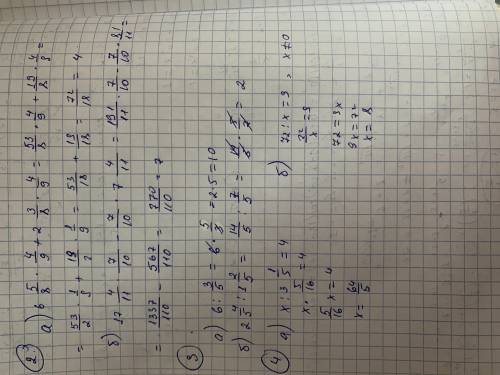 а) 6 5/8 · 4/9 + 2 3/8 · 4/9 = 53/8 · 4/9 + 19/8 · 4/9 =
= 53/2 · 1/9 + 19/2 · 1/9 = 53/18 + 19/18 = 72/18 = 4
б) 17 4/11 · 7/10 - 7/10 · 7 4/11 = 191/11 · 7/10 - 7/10 · 81/11 =
= 1337/110 - 567/110 = 770/110 = 7
3
а) 6 : 3/5 = 6 · 5/3 = 2 · 5 = 10
б) 2 4/5 : 1 2/5 = 14/5 : 7/5 = 14/5 · 5/7 = 2
4
а) x : 3 1/5 = 4
x · 5/16 = 4
5/16 x = 4
x = 64/5
б) 72 : x = 9, x ≠ 0
72/x = 9
72 = 9x
9x = 72
x = 8